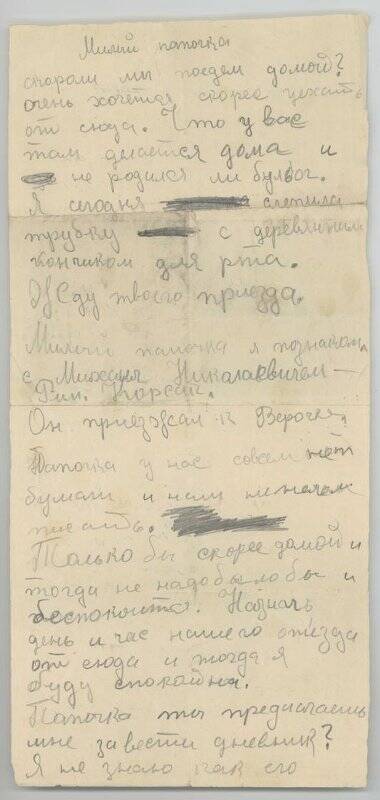 Милый папочка
скорали мы поедем домой?
очень хочется скорее уехать
от сюда. Что у вас
там делается дома и
не родился ли бульог.
Я сегодня слепила
трубку с деревяным
кончиком для рта.
Жду твоего приезда.
Милый папочка я познаком
с Михаил Николаевичем —
Рим. Корсак.
Он приезжал к Верочке.
Папочка у нас совсем нет
бумаги и нам нечем
писать.
Только бы скорее домой и
тогда не надо было бы и
беспокоитс. Назначь
день и час нашего отъезда
от сюда и тогда я
буду спокойна.
Папочка ты предлагаешь
мне завести дневник?
Я не знаю как его